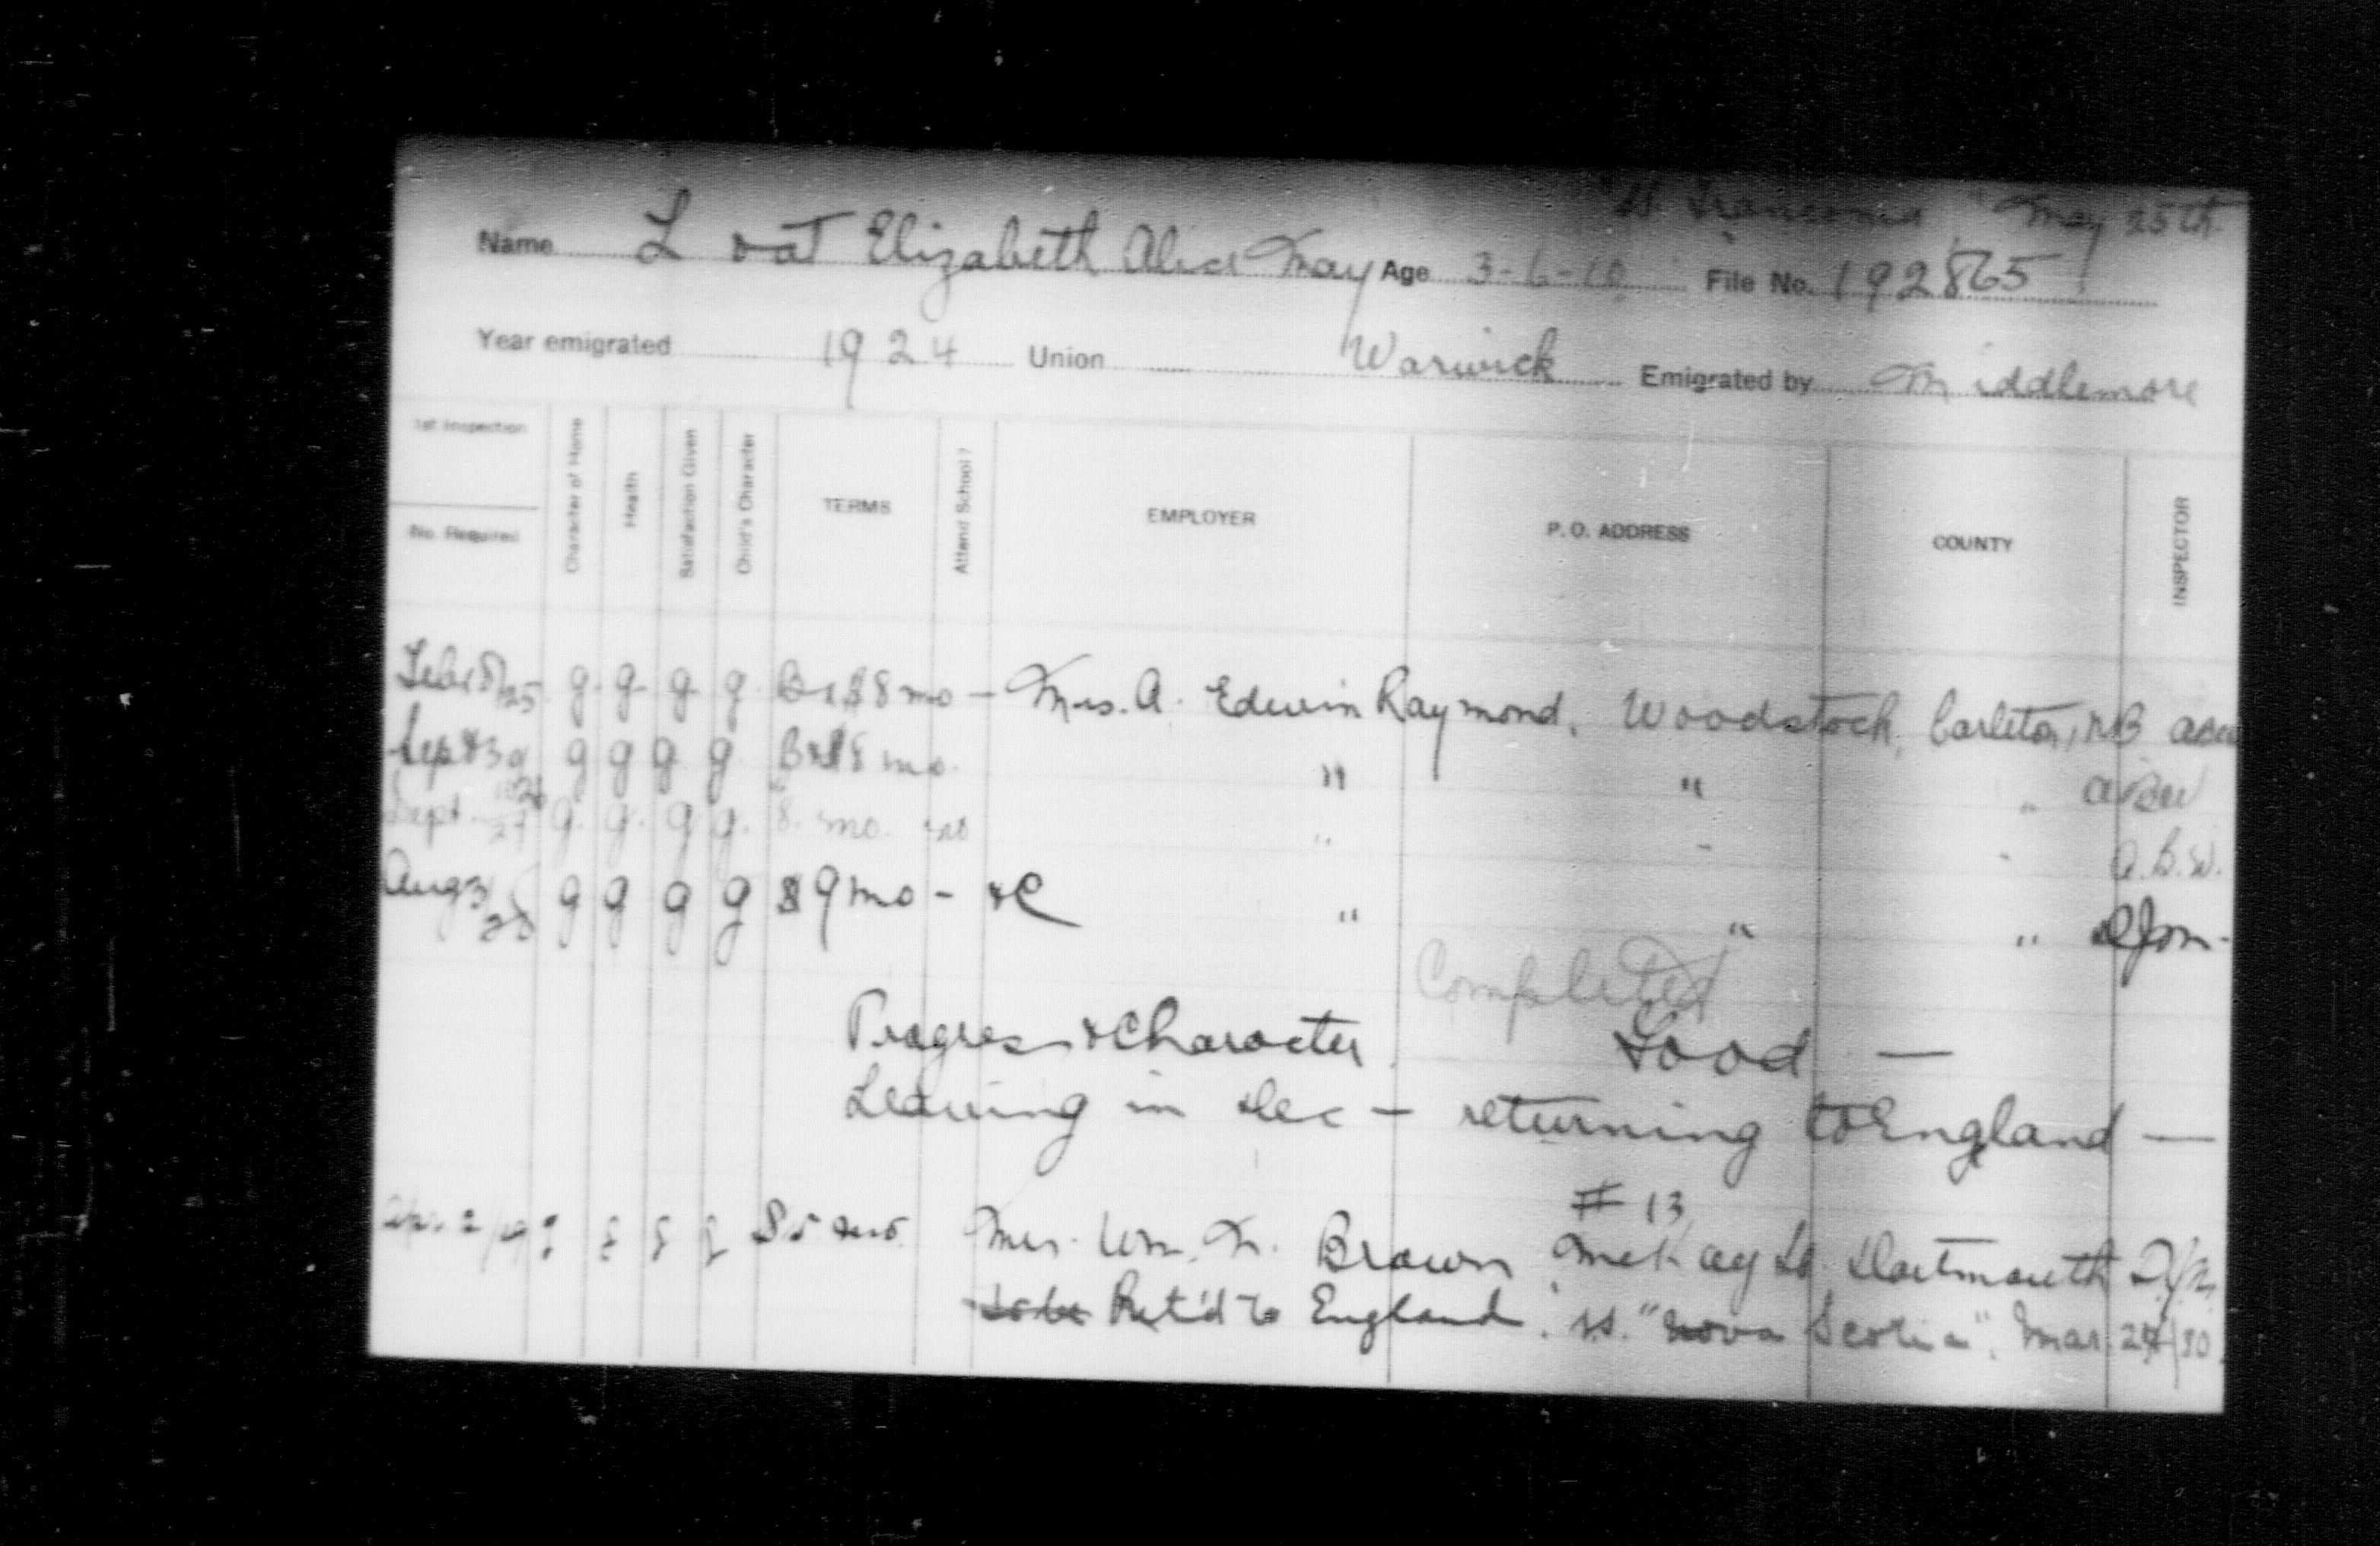 "SS Franconia" May 25th
Name L oat Elizabeth Alice May Age 3-6-10 File No. 192865
Year emigrated 1924 Union Warwick Emigrated by Middlemore
1st Inspection
No. Required
Character of Home
Health
Satisfaction Given
Child's Character
TERMS
Attend School?
EMPLOYER
P. O. ADDRESS
COUNTY
INSPECTOR
Feb 18/25 g. g. g g. B & $8 mo - Mrs. A. Edwin Raymond, Woodstock, Carleton, NB
g g g g B & $8 mo. " "
Sept g. g. g g. 8. mo. no " " " A.B.W.
Aug 3/28 g g g g $9 mo - " " "
Completed
Progress & Character Good —
Leaving in Dec - returning to England —
# 13
g g g g Mrs. Wm. Brown McKay St Dartmouth
to be Ret'd to England. ss. "Nova Scotia". Mar.